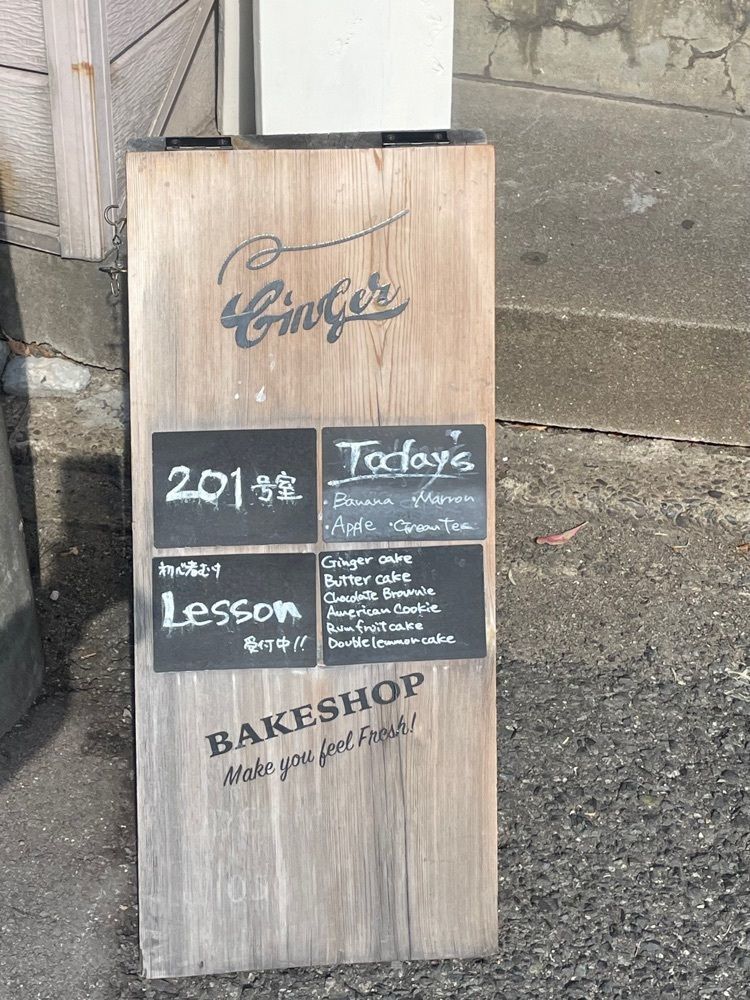 Ginger
201号室
Today's
・Banana ・Marron
・Apple ・Green Tea
初心者むけ
Lesson
受付中!!
Ginger cake
Butter cake
Chocolate Brownie
American Cookie
Rum fruit cake
Double lemmon cake
BAKESHOP
Make you feel Fresh!